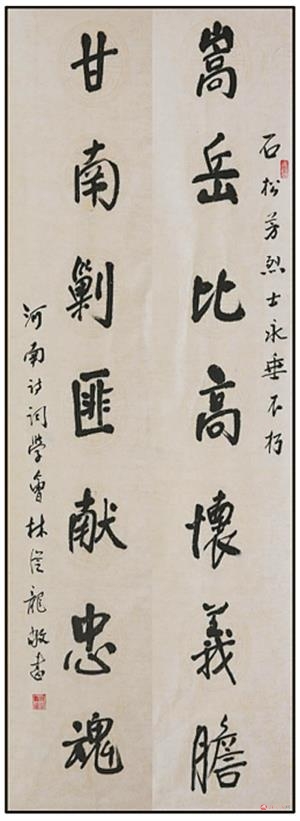 石松芳烈士永垂不朽
嵩岳比高懷義膽
甘南剿匪献忠魂
河南诗词学會林從龍敬書